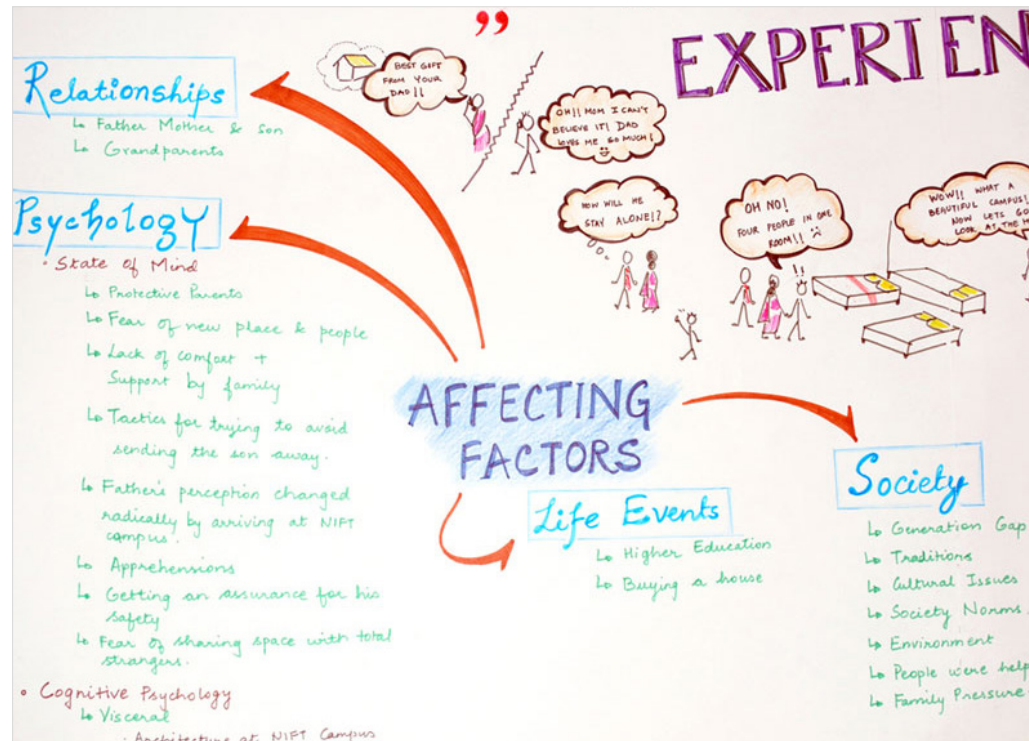 ”
EXPERIEN
BEST GIFT
FROM YOUR
DAD!!
OH!! MOM I CAN'T
BELIEVE IT! DAD
LOVES ME SO MUCH!
HOW WILL HE
STAY ALONE!?
OH NO!
FOUR PEOPLE IN ONE
ROOM!!
!!
WOW!! WHAT A
BEAUTIFUL CAMPUS!
NOW LETS GO
LOOK AT THE H
Relationships
↳ Father Mother & son
↳ Grandparents
Psychology
• State of Mind
↳ Protective Parents
↳ Fear of new place & people
↳ Lack of comfort +
Support by family
↳ Tactics for trying to avoid
sending the son away.
↳ Father's perception changed
radically by arriving at NIFT
campus.
↳ Apprehensions
↳ Getting an assurance for his
safety
↳ Fear of sharing space with total
strangers.
• Cognitive Psychology
↳ Visceral
• Architecture at NIFT Campus
AFFECTING
FACTORS
Life Events
↳ Higher Education
↳ Buying a house
Society
↳ Generation Gap
↳ Traditions
↳ Cultural Issues
↳ Society Norms
↳ Environment
↳ People were help
↳ Family Pressure